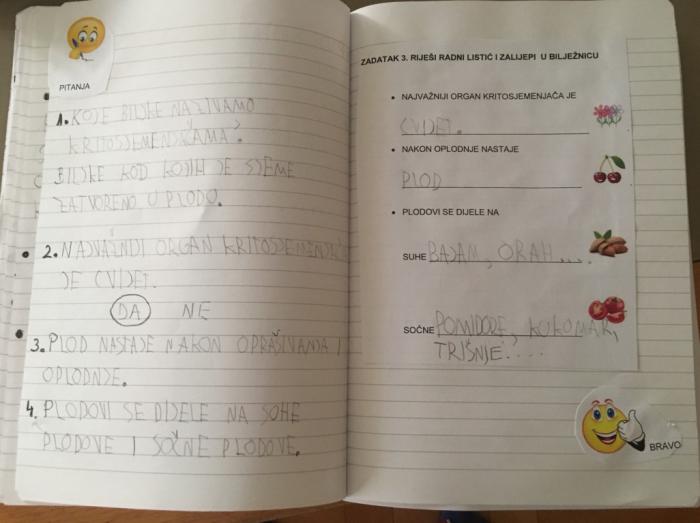 PITANJA
1. KOJE BILJKE NAZIVAMO
KRITOSJEMENJKAMA?
BILJKE KOD KOJIH JE SJEME
ZATVORENO U PLODU.
2. NAJVAŽNIJI ORGAN KRITOSJEMENJAČA
JE CVIJET.
DA NE
3. PLOD NASTAJE NAKON OPRAŠIVANJA I
OPLODNJE.
4. PLODOVI SE DIJELE NA SUHE
PLODOVE I SOČNE PLODOVE.
ZADATAK 3. RIJEŠI RADNI LISTIĆ I ZALIJEPI U BILJEŽNICU
• NAJVAŽNIJI ORGAN KRITOSJEMENJAČA JE
CVIJET.
• NAKON OPLODNJE NASTAJE
PLOD
• PLODOVI SE DIJELE NA
SUHE BAJAM, ORAH...
SOČNE POMIDORE, KUKUMAR,
TRIŠNJE....
BRAVO